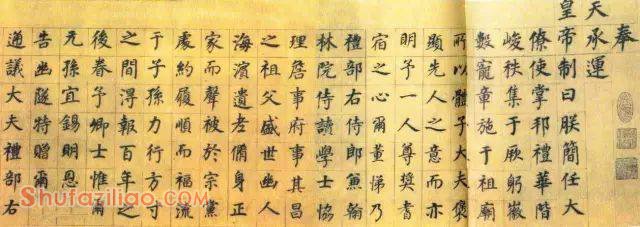 奉
天承運
皇帝制曰朕簡任大
僚使掌邦禮華階
峻秩集于厥躬徽
數寵章施于祖廟
所以體子大夫褒
顯先人之意而亦
明予一人尊獎耆
宿之心爾董悌乃
禮部右侍郎兼翰
林院侍讀學士協
理詹事府事其昌
之祖父盛世幽人
海濱遺老脩身正
家而聲被於宗黨
處約履順而福流
于子孫力行方寸
之間淂報百年之
後眷予卿士惟爾
元孫宜錫明恩
告幽隧特贈爾
通議大夫禮部右
Shufaziliao.com